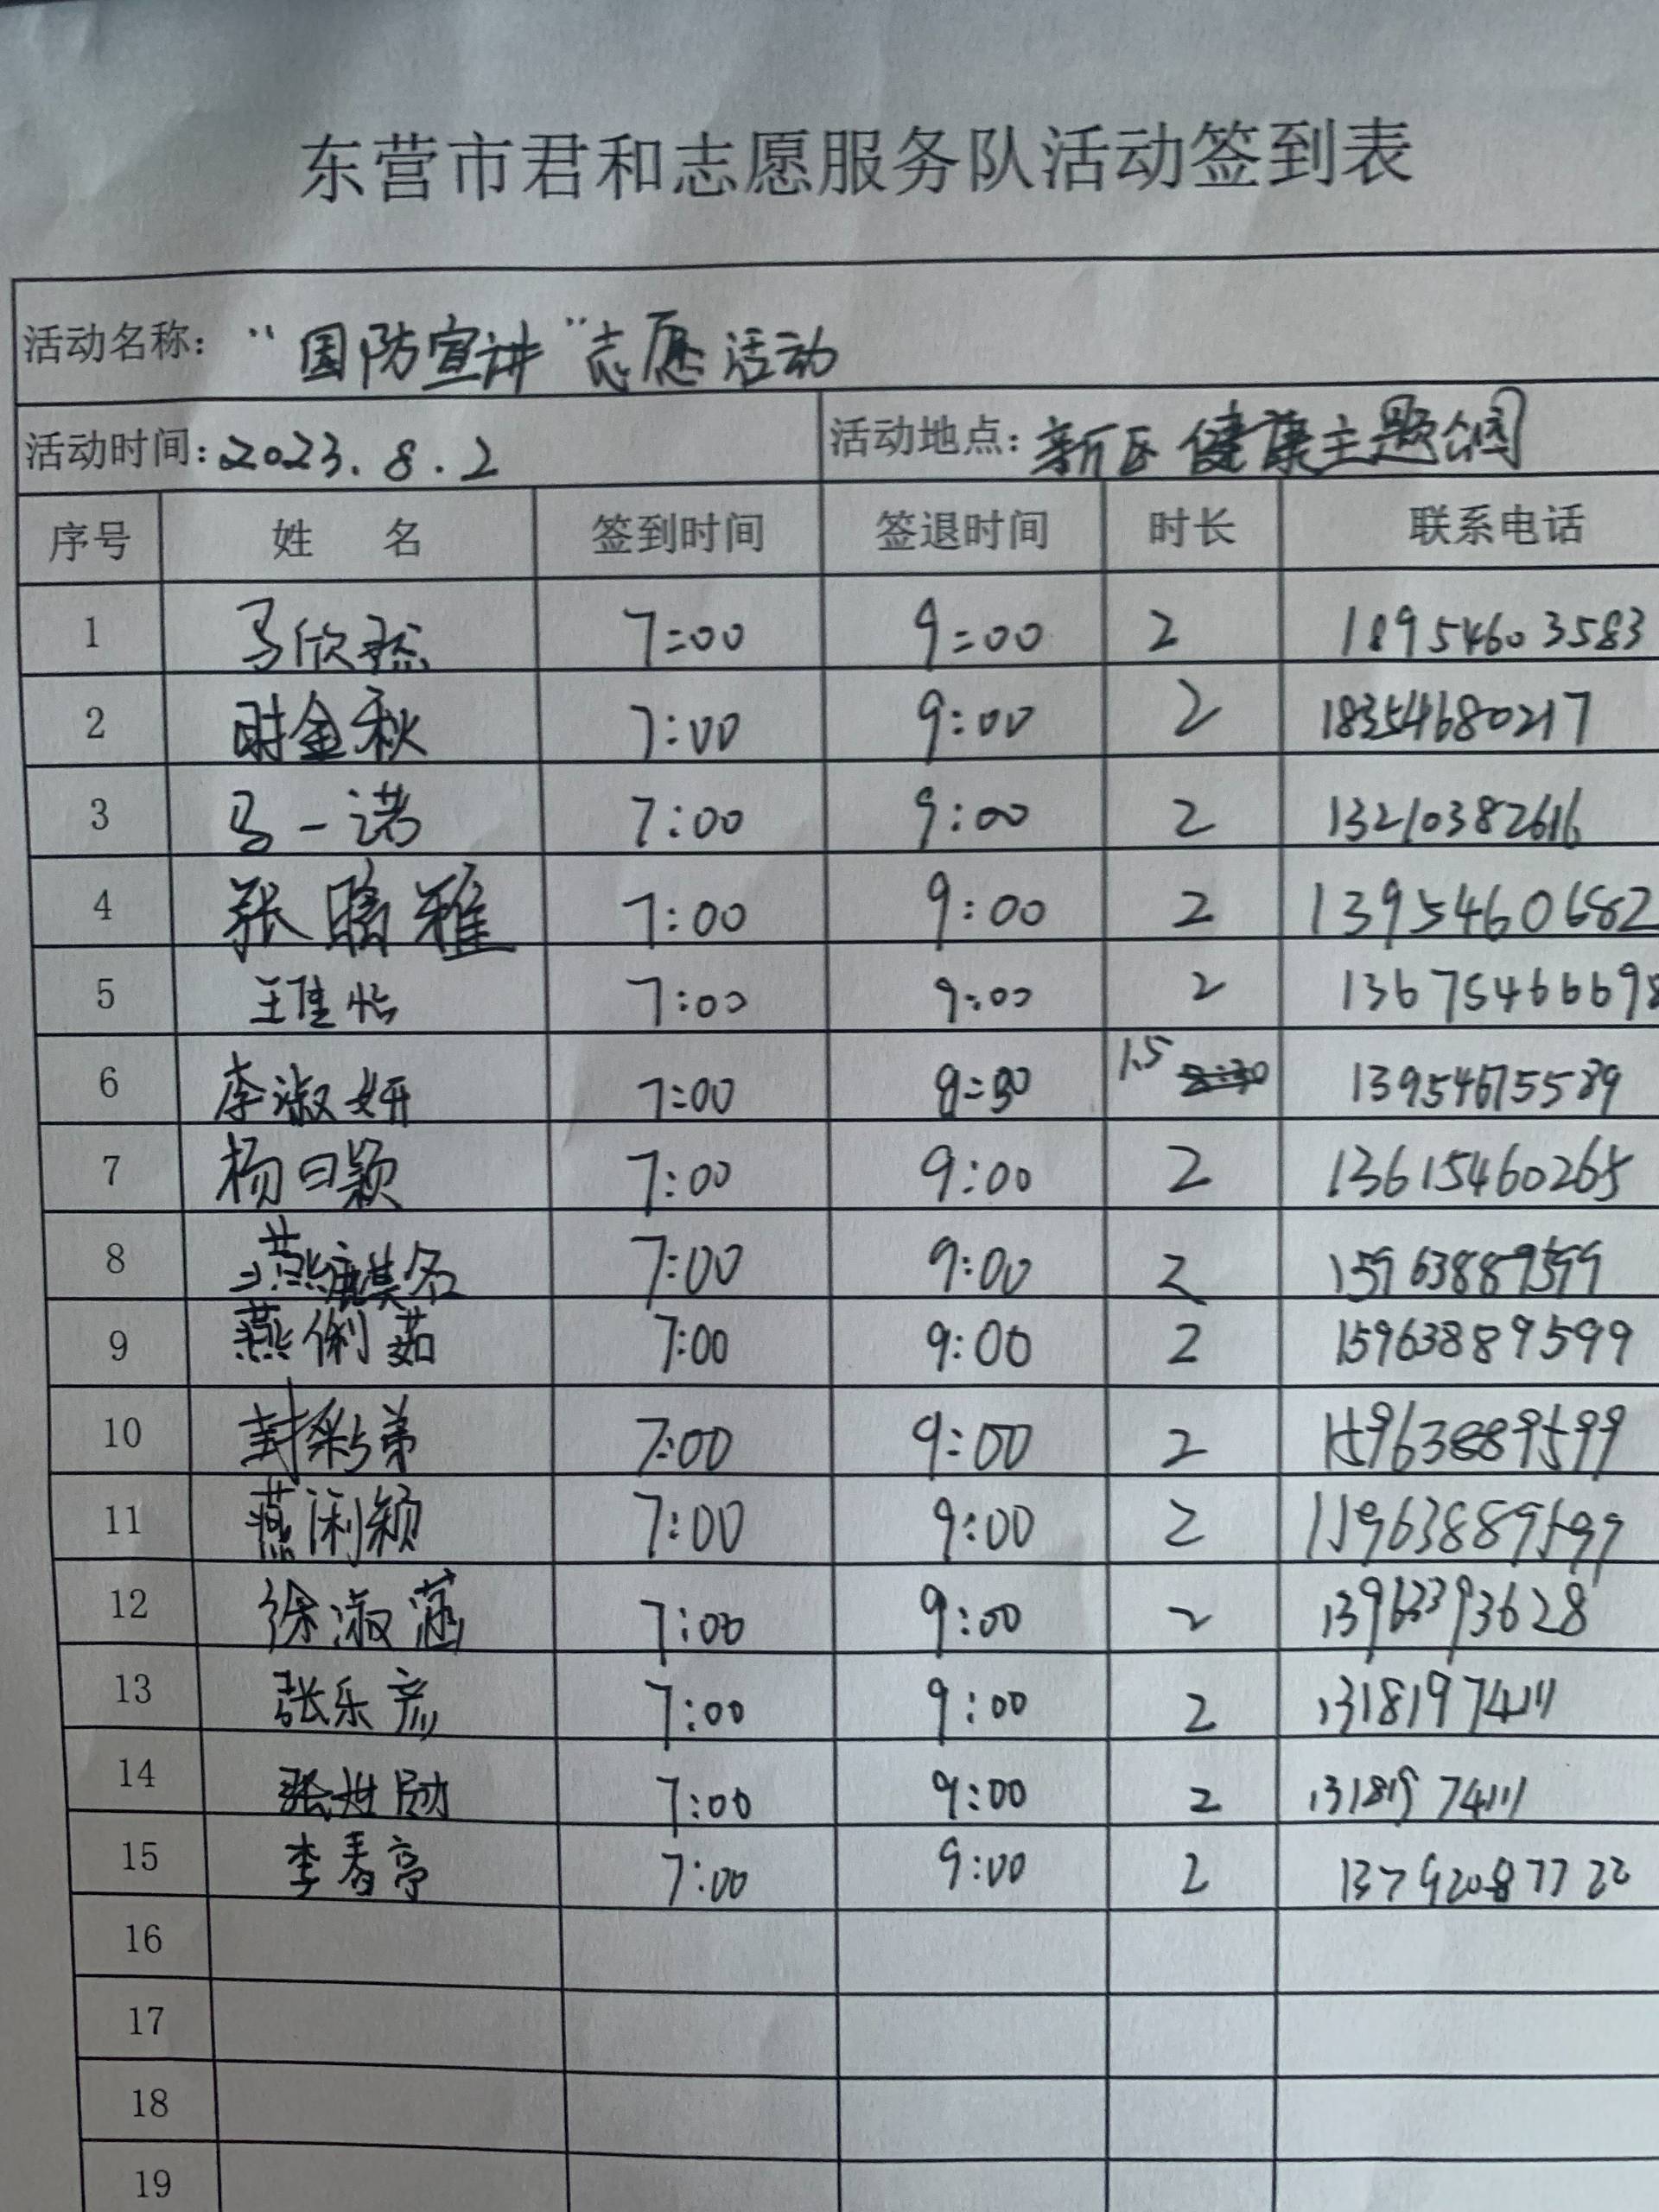 东营市君和志愿服务队活动签到表
活动名称：“国防宣讲”志愿活动
活动时间：2023.8.2 活动地点：新区健康主题公园
序号 姓 名 签到时间 签退时间 时长 联系电话
1 马欣 7:00 9:00 2 18954603583
2 时金秋 7:00 9:00 2 18354680217
3 马一诺 7:00 9:00 2 13210382616
4 张 雅 7:00 9:00 2 1395460682
5 王佳怡 7:00 9:00 2 13675466698
6 李淑妍 7:00 8:30 1.5 13954675589
7 杨曰颖 7:00 9:00 2 13615460265
8 燕 名 7:00 9:00 2 15963889599
9 燕俐茹 7:00 9:00 2 15963889599
10 封彩弟 7:00 9:00 2 15963889599
11 燕俐颖 7:00 9:00 2 15963889599
12 徐淑涵 7:00 9:00 2 13963393628
13 张乐彦 7:00 9:00 2 13181974111
14 张世勋 7:00 9:00 2 13181974111
15 李春亭 7:00 9:00 2 13792087722
16
17
18
19